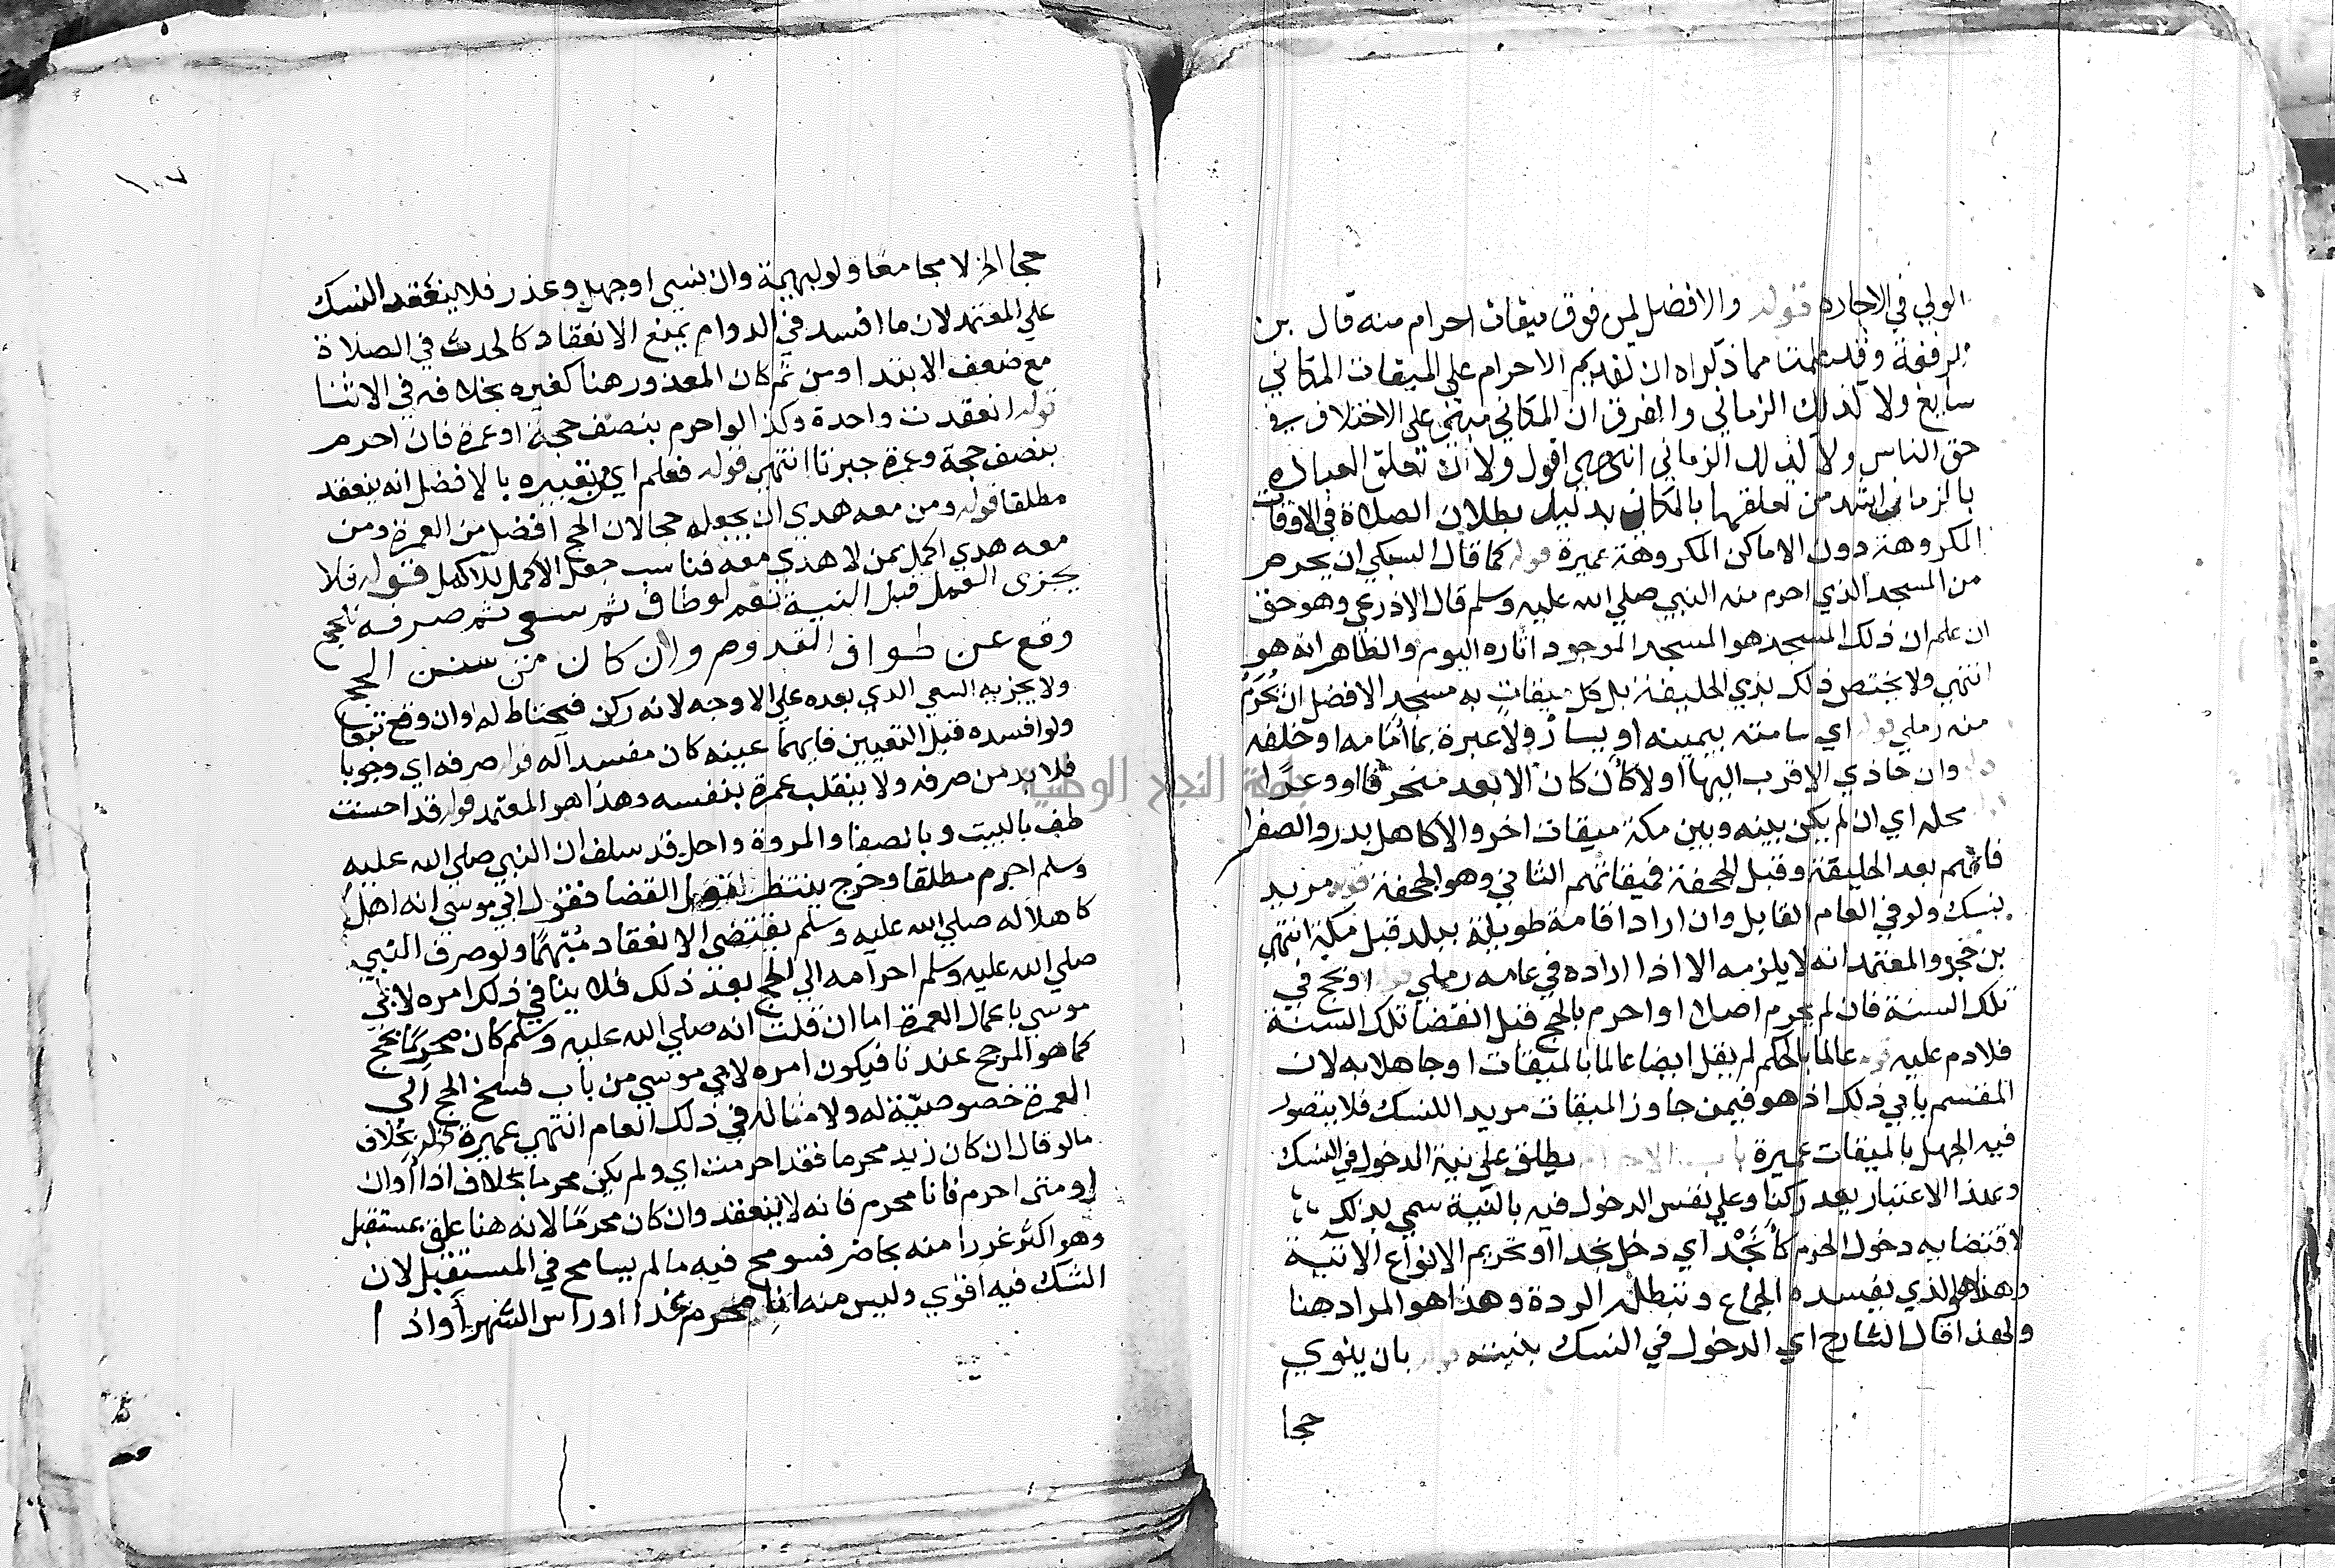 الولي في الاجارة قوله والافضل لمن فوق ميقات احرام منه قال بن
الرفعة وقد علمت مما ذكراه ان تقديم الاحرام علي الميقات المكاني
سايغ ولا كذلك الزماني والفرق ان المكاني مبني على الاختلاف في
حق الناس ولا كذلك الزماني انتهى اقول ولان تعلق العبادة
بالزمان اشد من تعلقها بالمكان بدليل بطلان الصلاة في الاوقات
المكروهة دون الاماكن المكروهة عميرة قوله كما قال السبكي ان يحرم
من المسجد الذي احرم منه النبي صلي الله عليه وسلم قال الاذرعي وهو حق
ان علم ان ذلك المسجد هو المسجد الموجود اثاره اليوم والظاهر انه هو
انتهي ولا يختص ذلك بذي الحليفة بل كل ميقات به مسجد الافضل ان يحرم
منه رملي قوله اي سامته بيمينه او يساره ولا عبرة بما امامه او خلفه
وان حاذي الاقرب اليها اولا كان كان الابعد منحرفا او وعرا
محله اي ان لم يكن بينه وبين مكة ميقات اخر والا كاهل بدر والصفرا
فانهم بعد الحليفة وقبل الجحفة فميقاتهم الثاني وهو الجحفة قوله مريد
بنسك ولو في العام القابل وان اراد اقامة طويلة ببلد قبل مكة انتهي
بن حجر والمعتمد انه لا يلزمه الا اذا اراده في عامه رملي قوله او حج في
تلك السنة فان لم يحرم اصلا او احرم بالحج قبل انقضا تلك السنة
فلا دم عليه قوله عالما بالحكم لم يقل ايضا عالما بالميقات او جاهلا به لان
المقسم يابي ذلك اذ هو فيمن جاوز الميقات مريدا للنسك فلا يتصور
فيه الجهل بالميقات عميرة باب الاحرام يطلق علي نية الدخول في النسك
وبهذا الاعتبار يعد ركنا وعلي نفس الدخول فيه بالنية سمي بذلك
لاقتضايه دخول الحرم كأنجد اي دخل نجدا او تحريم الانواع الاتية
وهذا هو الذي يفسده الجماع وتبطله الردة وهذا هو المراد هنا
ولهذا قال الشارح اي الدخول في النسك بنيته قوله بان ينوي
حجا
١٠٧
حجا الخ لا مجامعا ولو لبهيمة وان نسي او جهل وعذر فلا ينعقد النسك
علي المعتمد لان ما افسد في الدوام يمنع الانعقاد كالحدث في الصلاة
مع ضعف الابتدا ومن ثم كان المعذور هنا كغيره بخلافه في الاثنا
قوله انعقدت واحدة وكذا لو احرم بنصف حجة او عمرة فان احرم
بنصف حجة وعمرة جبرتا انتهى قوله فعلم اي من تعبيره بالافضل انه ينعقد
مطلقا قوله ومن معه هدي ان يجعله حجا لان الحج افضل من العمرة ومن
معه هدي اكمل ممن لا هدي معه فناسب جعل الاكمل للاكمل قوله فلا
يجزى العمل قبل النية نعم لو طاف ثم سعى ثم صرفه للحج
وقع عن طواف القدوم وان كان من سنن الحج
ولا يجزيه السعي الذي بعده علي الاوجه لانه ركن فيحتاط له وان وقع تبعا
ولو افسده قبل التعيين فايهما عينه كان مفسدا له قوله صرفه اي وجوبا
فلا بد من صرفه ولا ينقلب عمرة بنفسه وهذا هو المعتمد قوله قد احسنت
طف بالبيت وبالصفا والمروة واحل قد سلف ان النبي صلي الله عليه
وسلم احرم مطلقا وخرج ينتظر نزول القضا فقول ابي موسي انه اهل
كاهلاله صلي الله عليه وسلم يقتضى الانعقاد مبهما ولو صرف النبي
صلي الله عليه وسلم احرامه الي الحج بعد ذلك فلا ينافي ذلك امره لابي
موسى باعمال العمرة اما ان قلت انه صلي الله عليه وسلم كان محرما بحج
كما هو المرجح عندنا فيكون امره لابي موسي من باب فسخ الحج الى
العمرة خصوصية له ولامثاله في ذلك العام انتهي عميرة قوله بخلاف
مالو قال ان كان زيد محرما فقد احرمت اي ولم يكن محرما بخلاف اذا او ان
او متى احرم فانا محرم فانه لا ينعقد وان كان محرما لانه هنا علق بمستقبل
وهو اكثر غررا منه بحاضر فسومح فيه مالم يسامح في المستقبل لان
الشك فيه اقوي وليس منه انا محرم غدا او راس الشهر او اذا